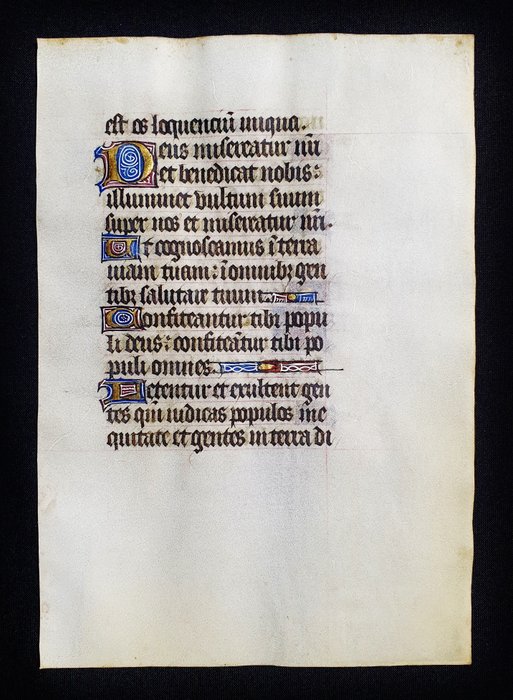 est os loquenciū iniqua.
Deus misereatur nr̄i
et benedicat nobis:
illuminet vultum suum
super nos et misereatur nr̄i.
Ut cognoscamus ī terra
viam tuam: ī omnibꝫ gen
tibꝫ salutare tuum.
Confiteantur tibi popu
li deus: confiteātur tibi po
puli omnes.
Letentur et exultent gen
tes qm̄ iudicas populos in e
quitate et gentes in terra di